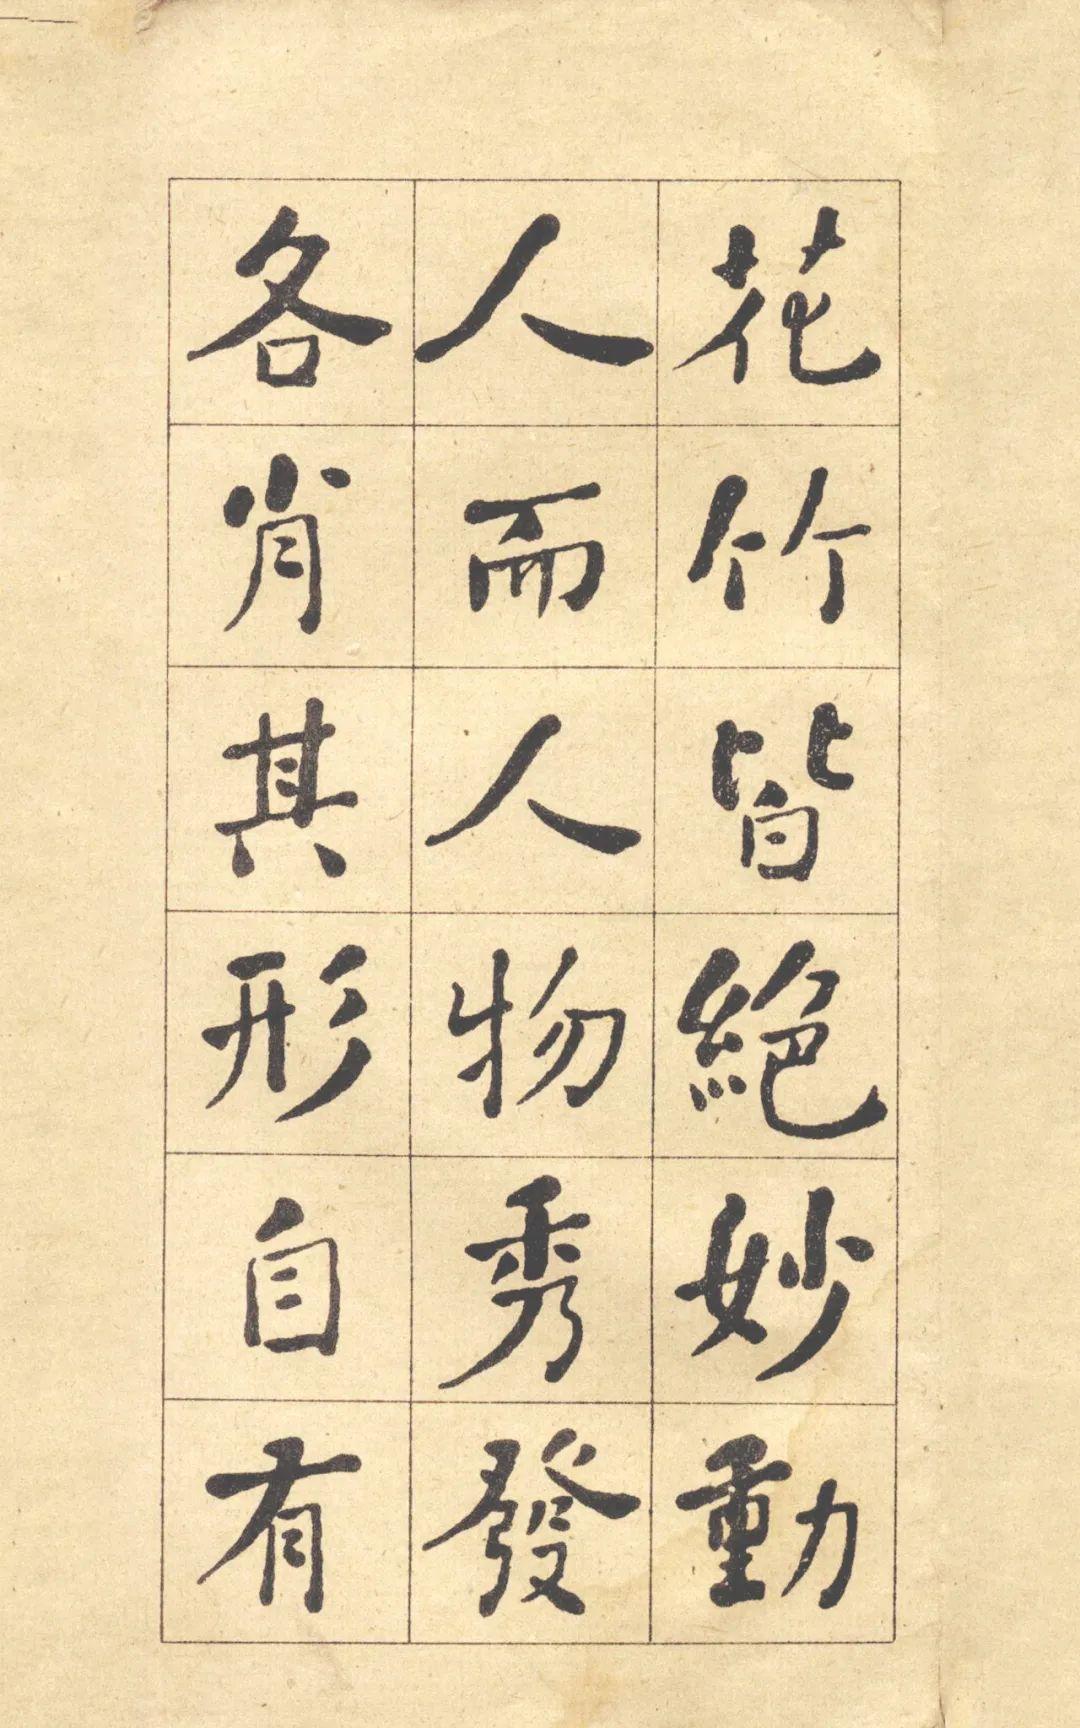 花竹皆絶妙動
人而人物秀發
各肖其形自有